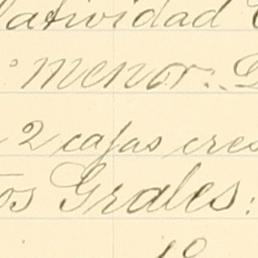 latividad
Menor:
2 cajas cres
tos Grales: